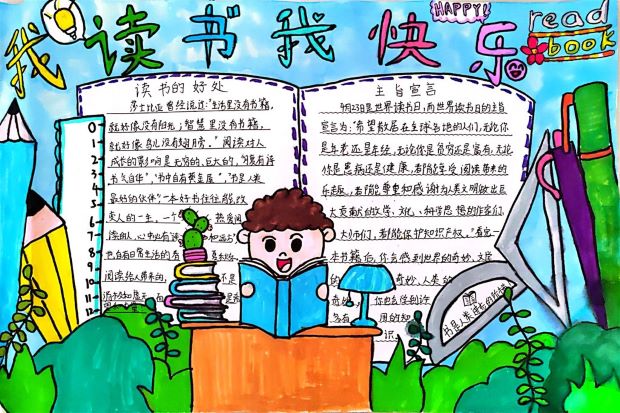 我读书我快乐
HAPPY!
read
book
读书的好处
莎士比亚曾经说过:"生活里没有书籍,
就好像没有阳光;智慧里没有书籍,
就好像鸟儿没有翅膀。"阅读对人
成长的影响是无穷的、巨大的,
"书中自有黄金屋",
最好的伙伴",一本好书往往能改
变人的一生,一个
读的人,心中必有
也自有日常生活的
阅读给人带来的,
主旨宣言
4月23日是世界读书日,而世界读书日的主旨
宣言为:"希望散居在全球各地的人们,无论你
是年老还是年轻,无论你是贫穷还是富有,无论
你是患病还是健康,都能享受阅读带来的
乐趣,都能尊重和感谢为人类文明做出巨
大贡献的文学、文化、科学思想的作家们、
大师们,都能保护知识产权。"看完一
本书籍后,你会感到世界的奇妙、文学
的 奇妙、人类的
奇妙,
书是人类进步的阶梯
0
1
2
3
4
5
6
7
8
9
10
11
12